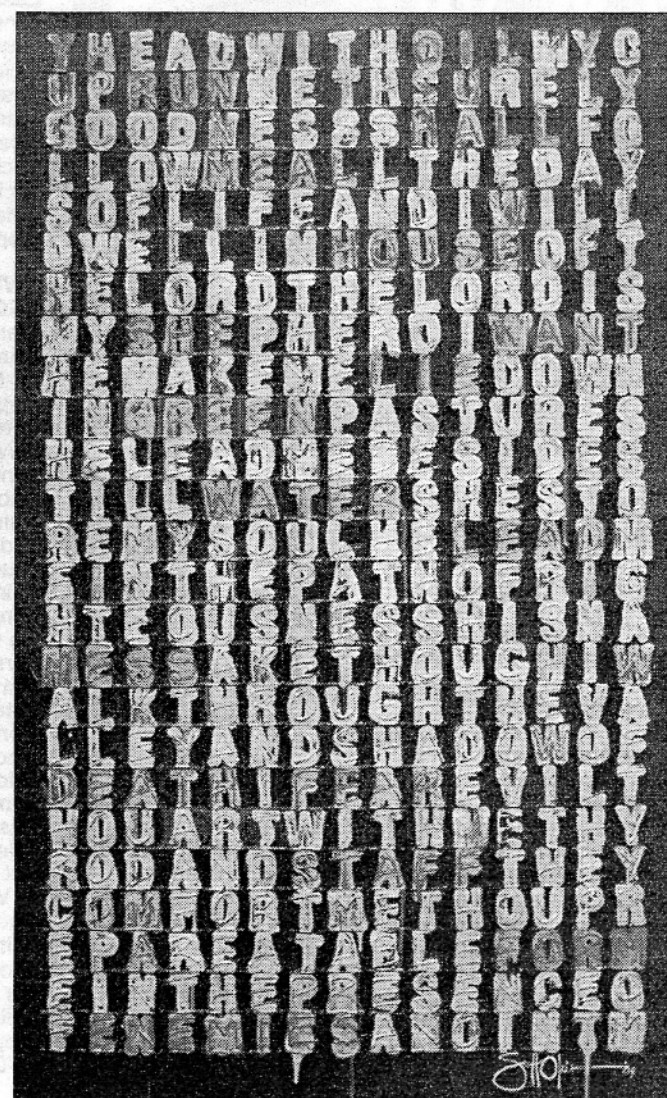 YHEADWITHOILMYC
UPRUNNETHSURELY
GOODNESSSHALLFO
LLOWMEALLTHEDAY
SOFLIFEANDIWILL
DWELLINHOUSEOFT
HELORDTHELORDIS
MYSHEPHERDIWANT
HEMAKEMELIEDOWN
INGREENPASTURES
HELEADMEBESIDES
TILLWATERSHESTO
REMYSOULHELEADM
EINTHEPATHOFRIG
HTEOUSNESSHISNA
MESSAKETHOUGHIW
ALKTHROUGHTHEVA
LLEYANDSHADOWOF
DEATHIFEAREVILT
HOUARTWITHMETHY
RODANDSTAFFTHEY
COMFORTMETHOUPR
EPAREATABLEFORM
EINTHEPRESENCEO
FENEMIESANOINTM